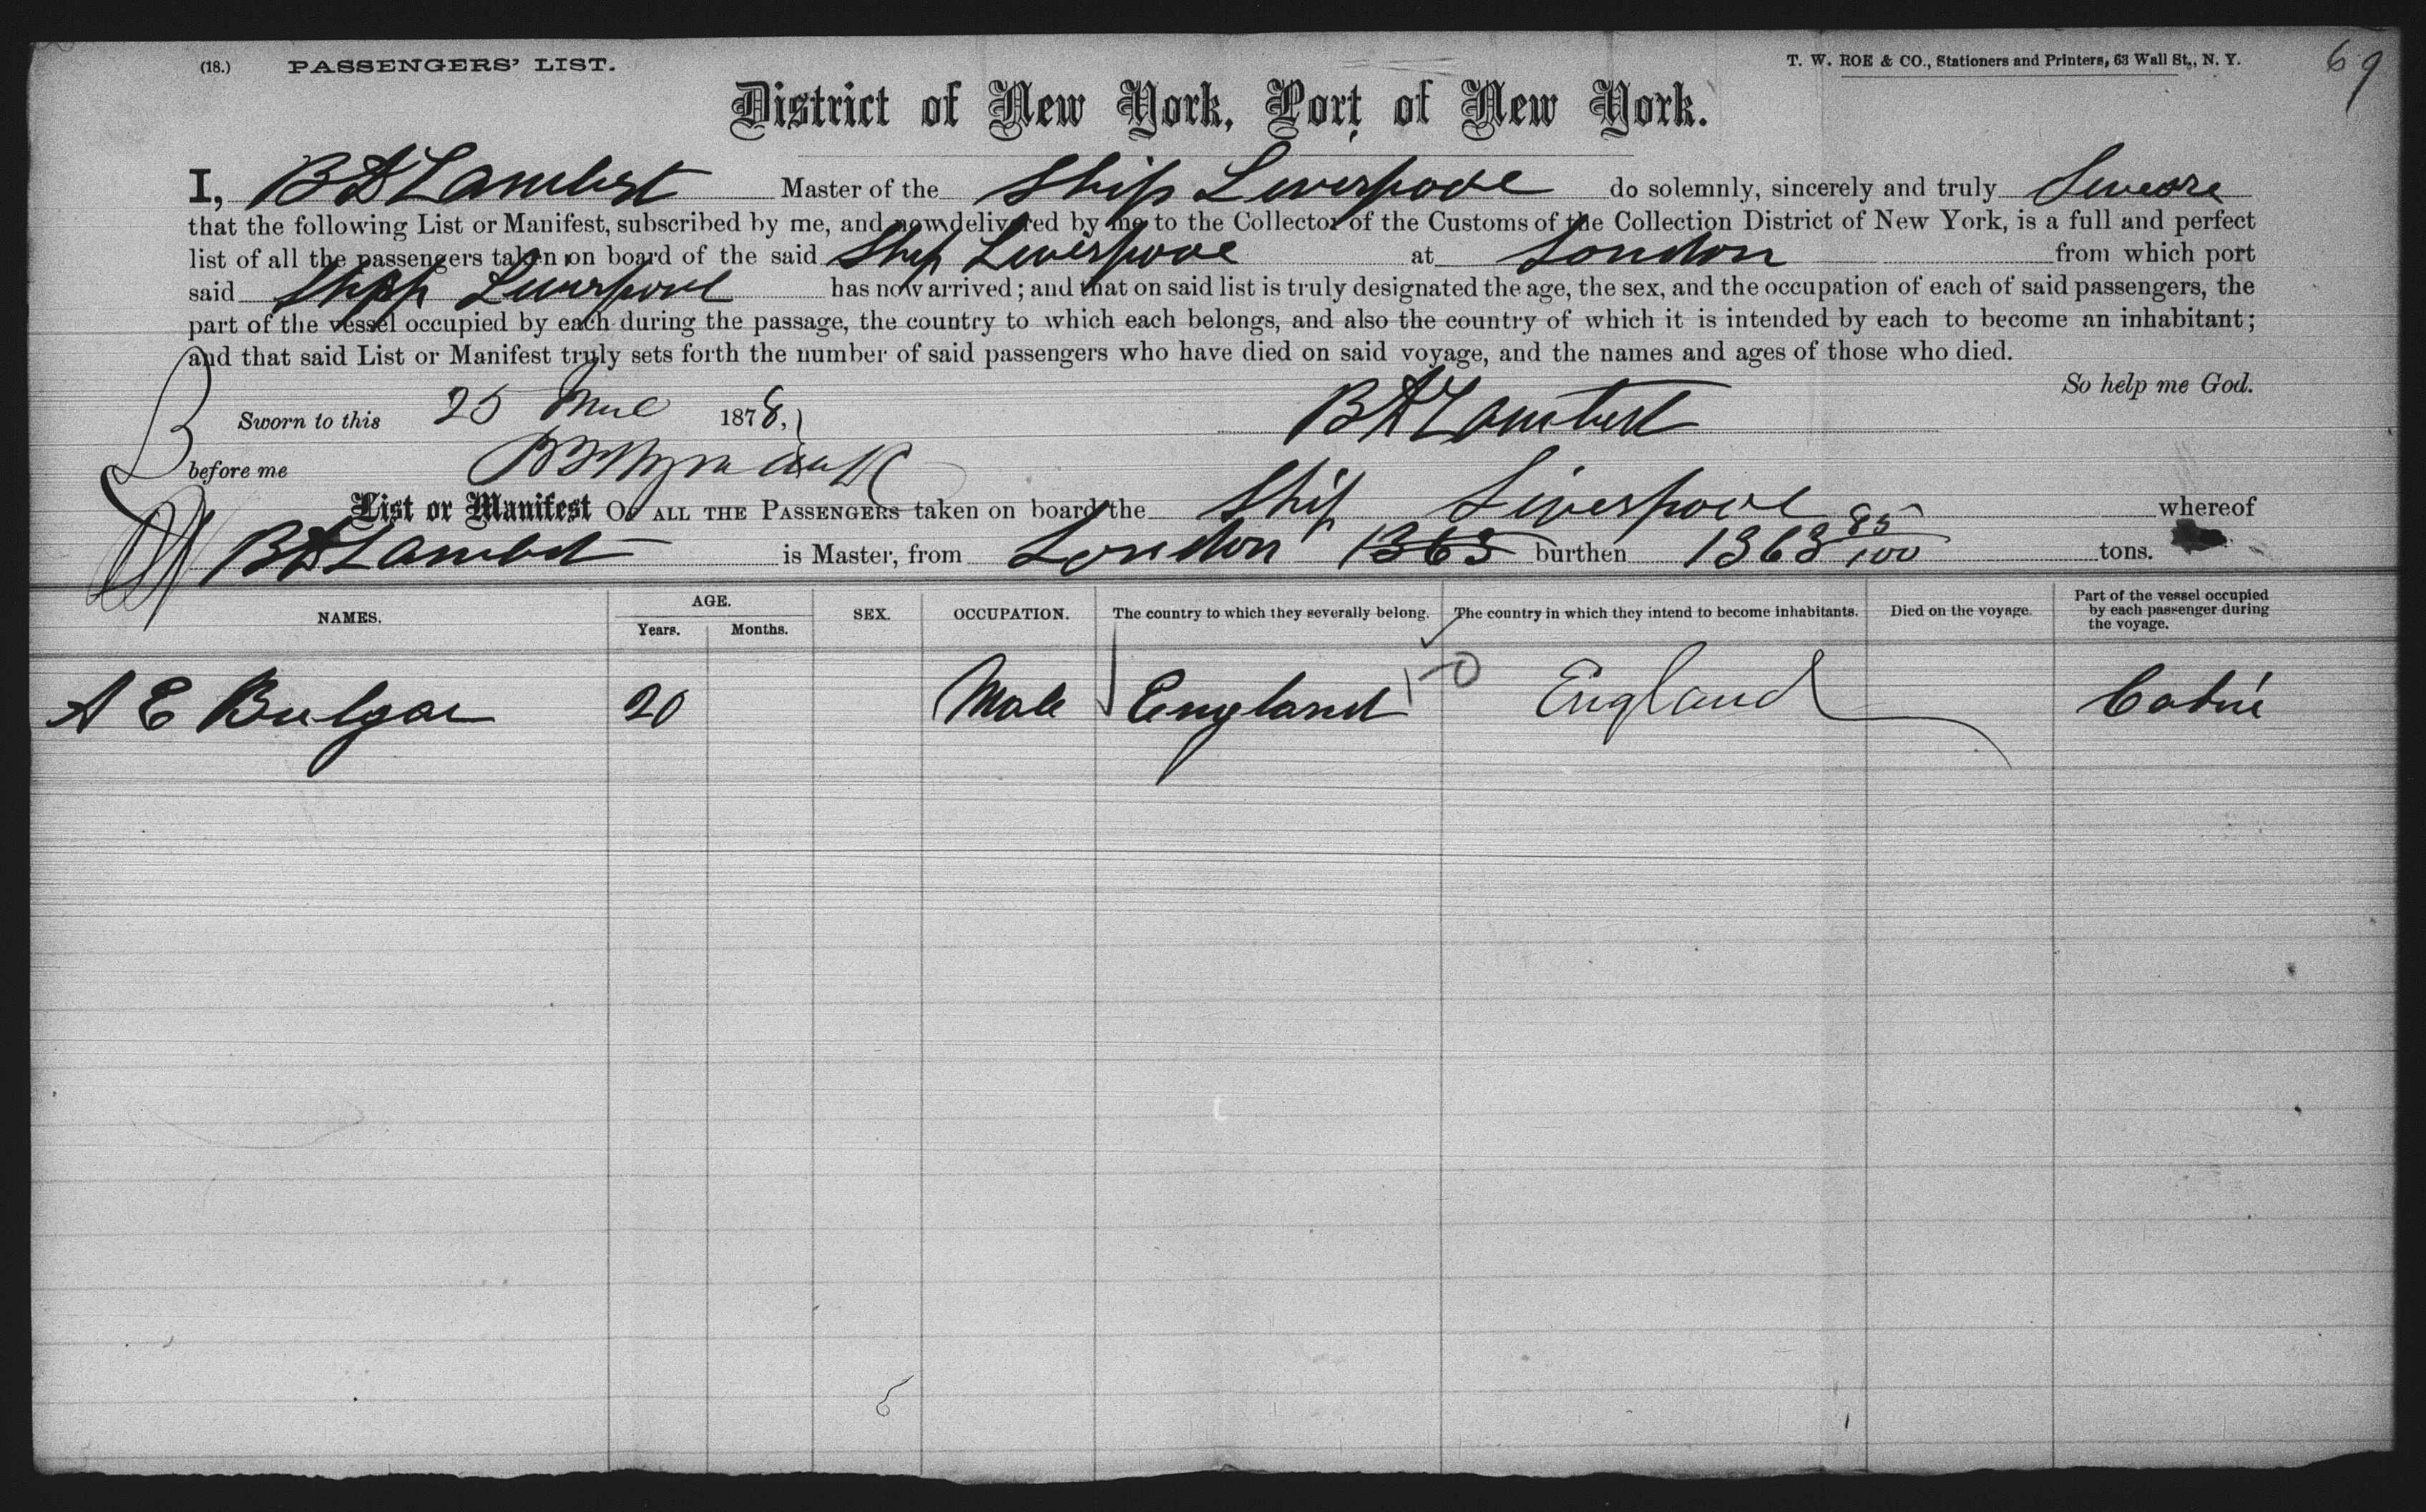 (18.) PASSENGERS' LIST. T. W. ROE & CO., Stationers and Printers, 63 Wall St., N. Y. 69
District of New York, Port of New York.
I, B A Lambert Master of the Ship Liverpool do solemnly, sincerely and truly Sweare
that the following List or Manifest, subscribed by me, and now delivered by me to the Collector of the Customs of the Collection District of New York, is a full and perfect
list of all the passengers taken on board of the said Ship Liverpool at London from which port
said Shipp Liverpool has now arrived; and that on said list is truly designated the age, the sex, and the occupation of each of said passengers, the
part of the vessel occupied by each during the passage, the country to which each belongs, and also the country of which it is intended by each to become an inhabitant;
and that said List or Manifest truly sets forth the number of said passengers who have died on said voyage, and the names and ages of those who died.
So help me God.
Sworn to this 25 1878, B A Lambert
before me
List or Manifest OF ALL THE PASSENGERS taken on board the Ship Liverpool whereof
B A Lambert is Master, from London 1363 burthen 1363 85/100 tons.
NAMES. AGE. Years. Months. SEX. OCCUPATION. The country to which they severally belong. The country in which they intend to become inhabitants. Died on the voyage. Part of the vessel occupied by each passenger during the voyage.
A E Bulgar 20 Male England England Cabin